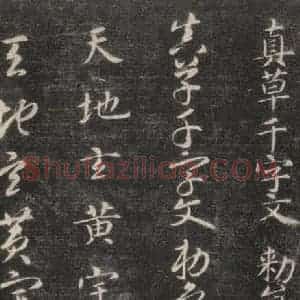 真草千字文勅
真草千字文勅
天地玄黃宇
天地玄黃宇
Shufaziliao.COM